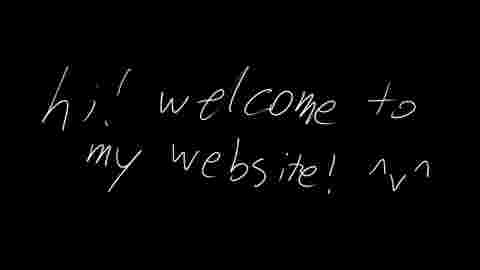 hi! welcome to
my website! ^v^